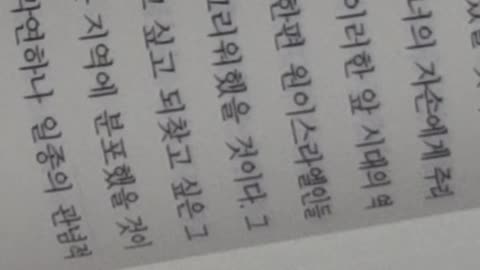 너의 자손에게 주리
이러한 앞 시대의 역
한편 원이스라엘인들
그리워했을 것이다. 그
싶고 되찾고 싶은 그
지역에 분포했을 것이
일종의 관념적